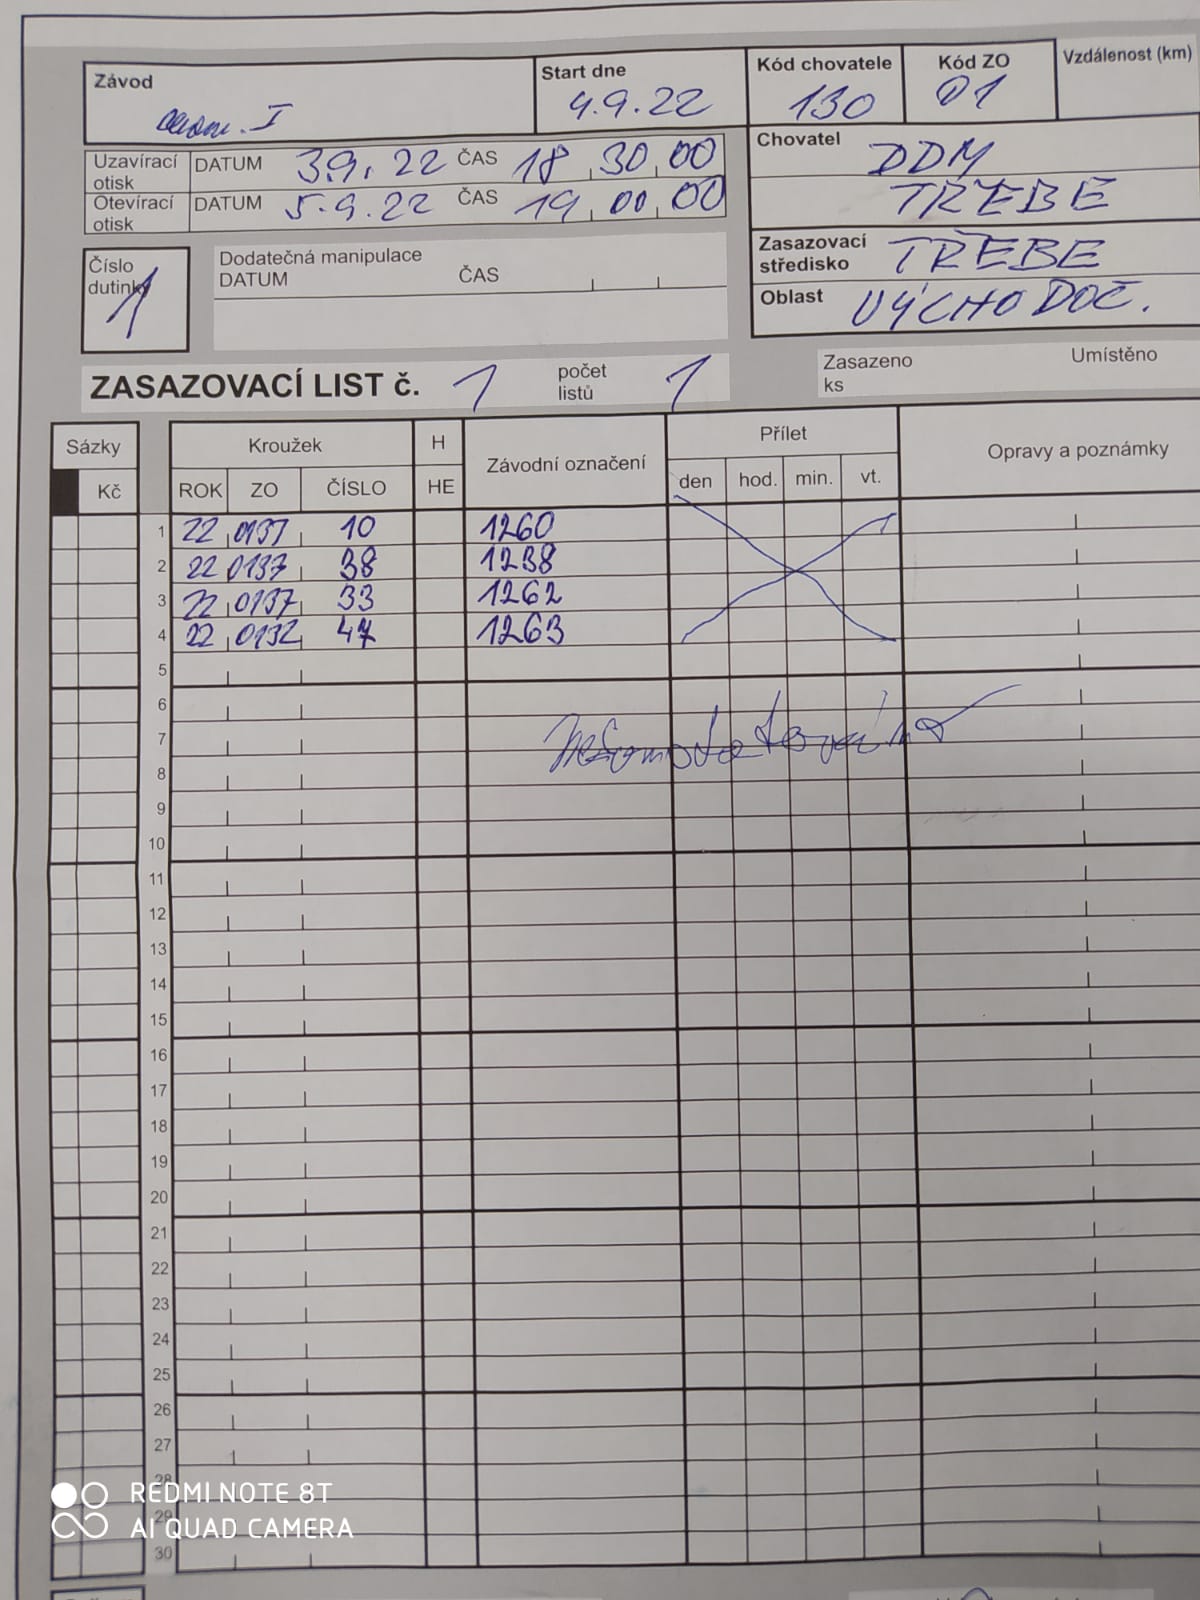 Závod
Start dne
4.9.22
Kód chovatele
130
Kód ZO
01
Vzdálenost (km)
Uzavírací otisk DATUM 3.9.22 ČAS 18 30 00
Otevírací otisk DATUM 5.9.22 ČAS 19 00 00
Chovatel DDM
TŘEBE
Zasazovací středisko TŘEBE
Oblast VÝCHODOČ.
Číslo dutinky
1
Dodatečná manipulace
DATUM ČAS
ZASAZOVACÍ LIST č. 1 počet listů 1
Zasazeno ks
Umístěno
Sázky Kroužek H Závodní označení Přílet Opravy a poznámky
Kč ROK ZO ČÍSLO HE den hod. min. vt.
1 22 0137 10 1260
2 22 0137 38 1238
3 22 0137 33 1262
4 22 0132 47 1263
5
6
7
8
9
10
11
12
13
14
15
16
17
18
19
20
21
22
23
24
25
26
27
28
29
30
REDMI NOTE 8T
AI QUAD CAMERA